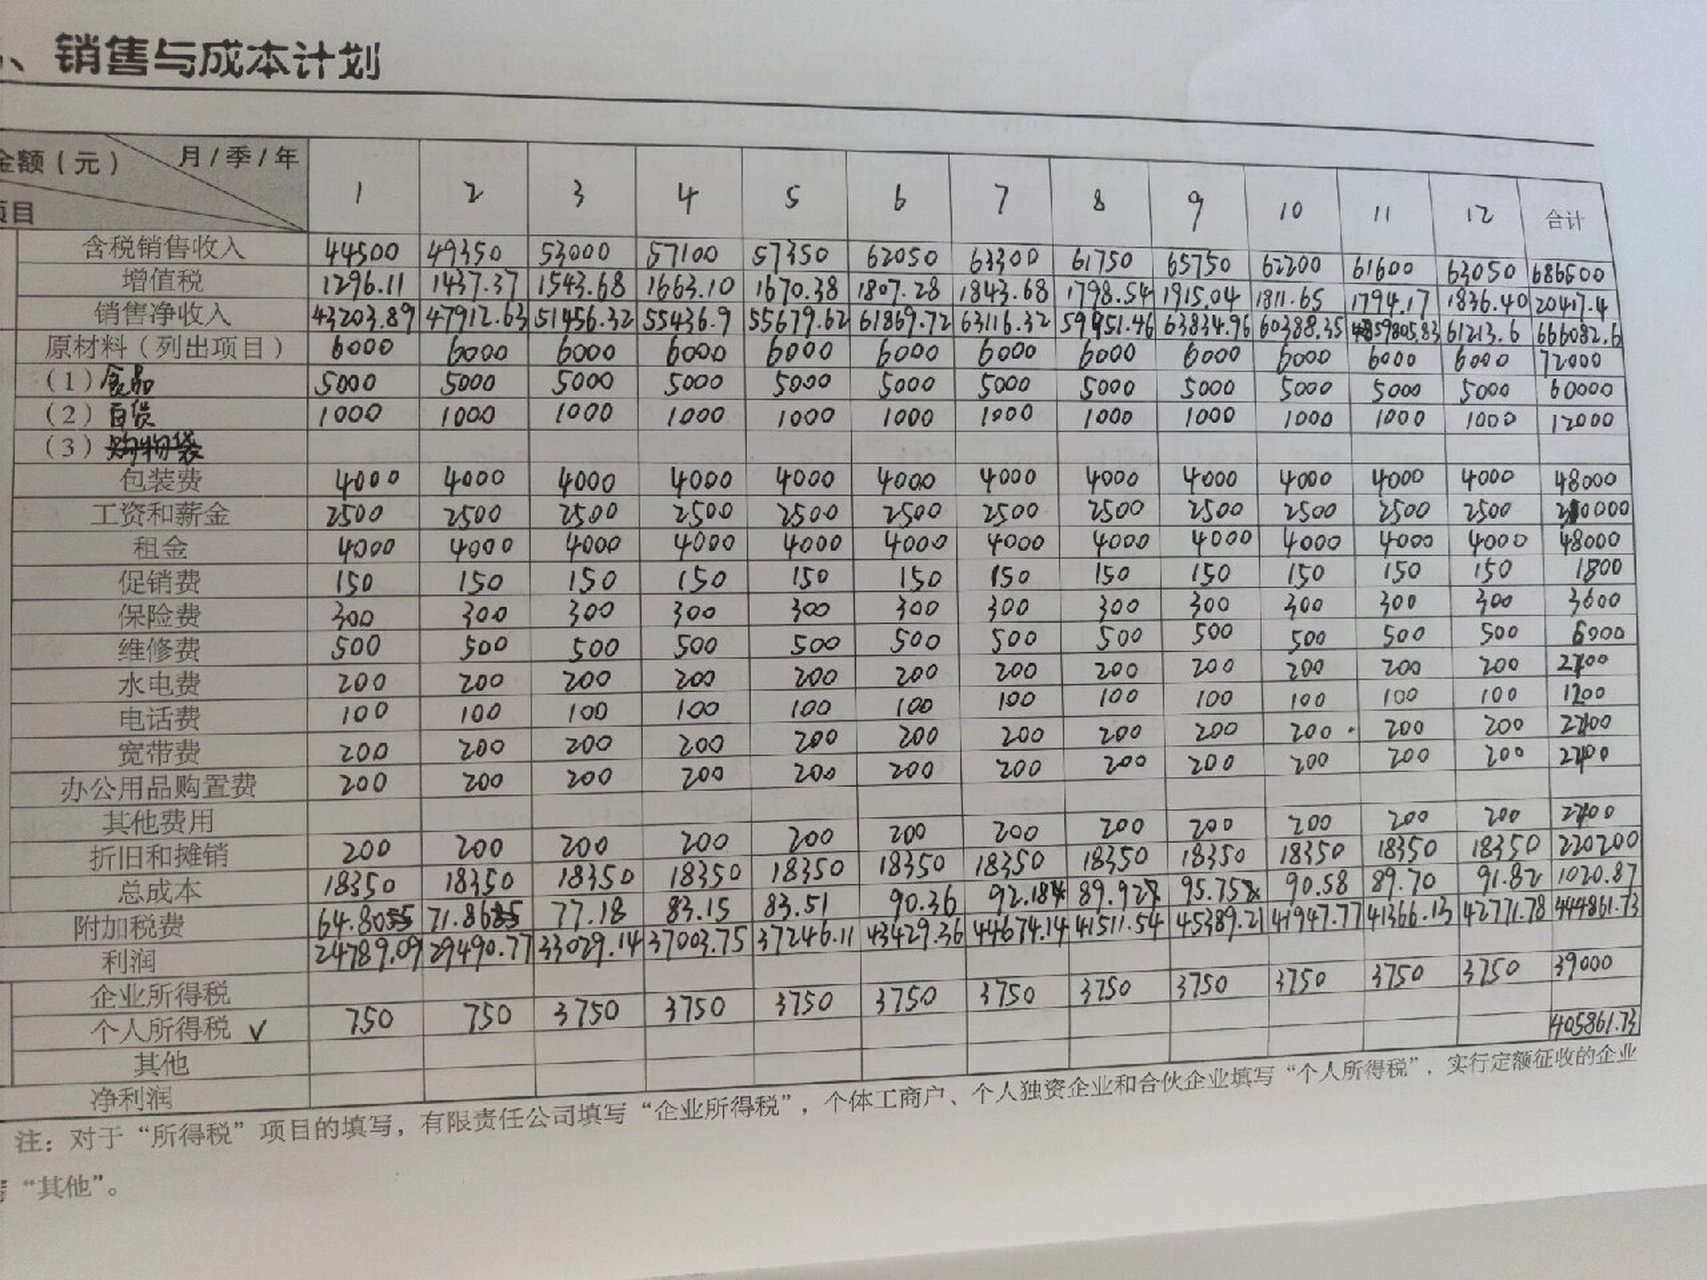 、销售与成本计划
金额（元） 月/季/年 1 2 3 4 5 6 7 8 9 10 11 12 合计
项目
含税销售收入 44500 49350 53000 57100 57350 62050 63300 61750 65750 62200 61600 63050 686500
增值税 1296.11 1437.37 1543.68 1663.10 1670.38 1807.28 1843.68 1798.54 1915.04 1811.65 1794.17 1836.40 20417.4
销售净收入 43203.89 47912.63 51456.32 55436.9 55679.62 61869.72 63116.32 59951.46 63834.96 60388.35 59805.83 61213.6 666082.6
原材料（列出项目） 6000 6000 6000 6000 6000 6000 6000 6000 6000 6000 6000 6000 72000
（1）食品 5000 5000 5000 5000 5000 5000 5000 5000 5000 5000 5000 5000 60000
（2）百货 1000 1000 1000 1000 1000 1000 1000 1000 1000 1000 1000 1000 12000
（3）购物袋
包装费 4000 4000 4000 4000 4000 4000 4000 4000 4000 4000 4000 4000 48000
工资和薪金 2500 2500 2500 2500 2500 2500 2500 2500 2500 2500 2500 2500
租金 4000 4000 4000 4000 4000 4000 4000 4000 4000 4000 4000 4000 48000
促销费 150 150 150 150 150 150 150 150 150 150 150 150 1800
保险费 300 300 300 300 300 300 300 300 300 300 300 300 3600
维修费 500 500 500 500 500 500 500 500 500 500 500 500 6000
水电费 200 200 200 200 200 200 200 200 200 200 200 200
电话费 100 100 100 100 100 100 100 100 100 100 100 100 1200
宽带费 200 200 200 200 200 200 200 200 200 200 200 200
办公用品购置费 200 200 200 200 200 200 200 200 200 200 200 200
其他费用
折旧和摊销 200 200 200 200 200 200 200 200 200 200 200 200
总成本 18350 18350 18350 18350 18350 18350 18350 18350 18350 18350 18350 18350 220200
附加税费 64.80 71.86 77.18 83.15 83.51 90.36 92.18 89.92 95.75 90.58 89.70 91.82 1020.87
利润 24789.09 29490.77 33029.14 37003.75 37246.11 43429.36 44674.14 41511.54 45389.21 41947.77 41366.13 42771.78 444861.73
企业所得税
个人所得税 √ 750 750 3750 3750 3750 3750 3750 3750 3750 3750 3750 3750 39000
其他
净利润 405861.73
注：对于“所得税”项目的填写，有限责任公司填写“企业所得税”，个体工商户、个人独资企业和合伙企业填写“个人所得税”，实行定额征收的企业
“其他”。